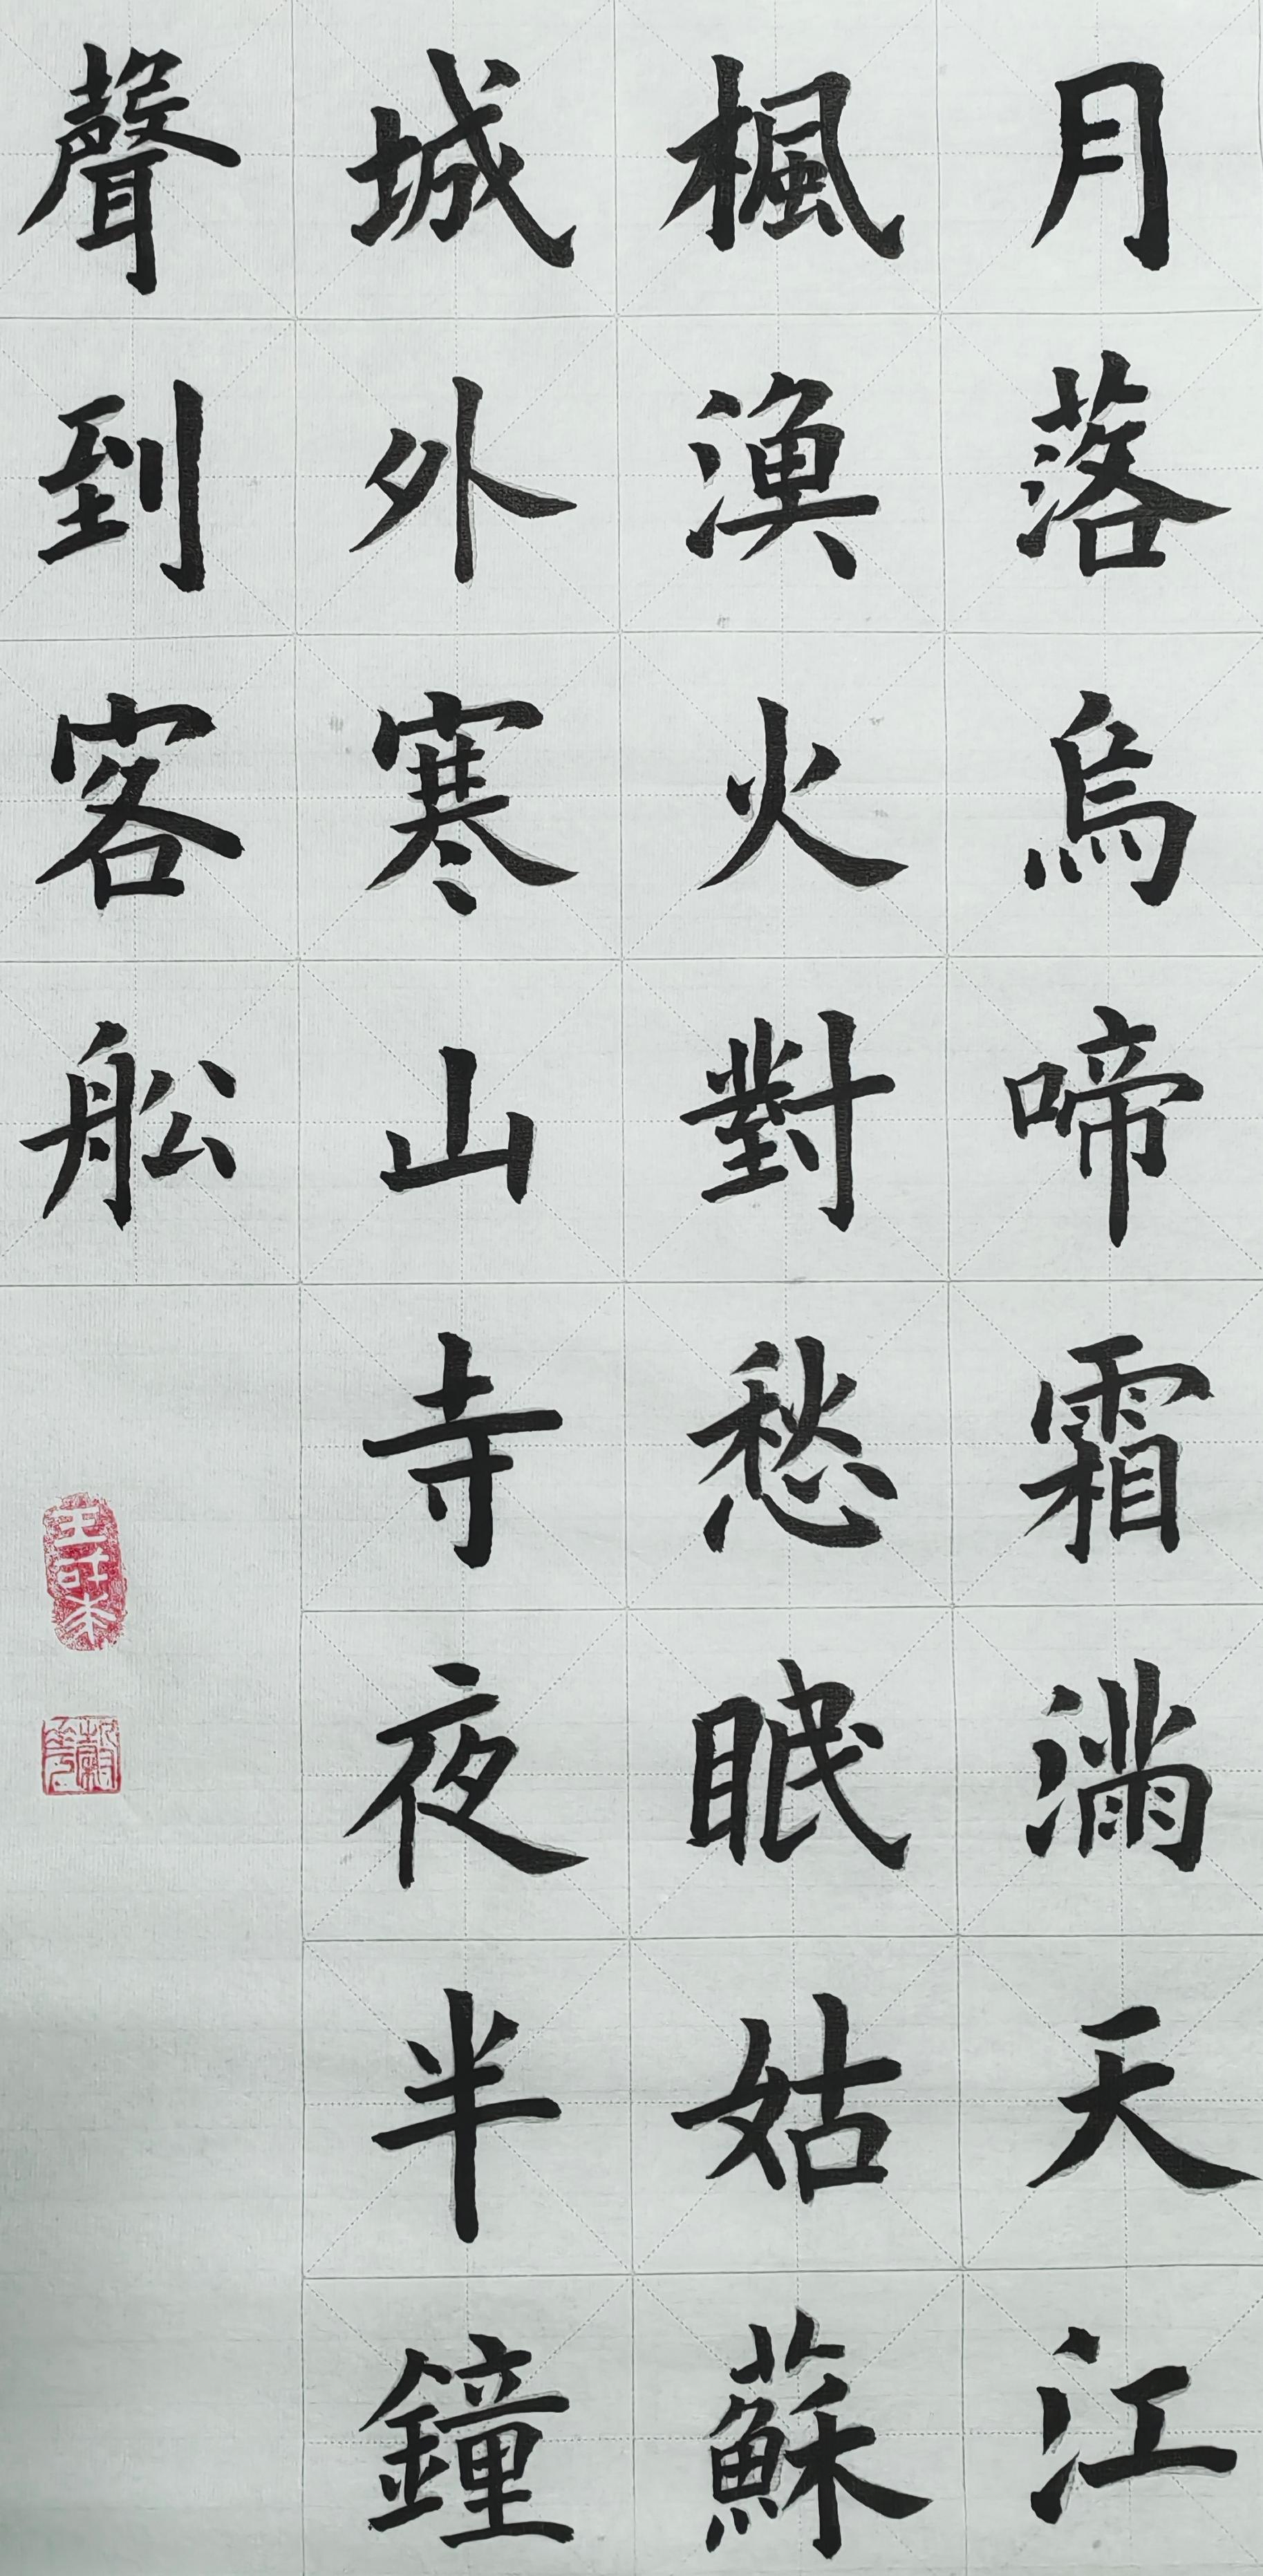 月落烏啼霜滿天江
楓漁火對愁眠姑蘇
城外寒山寺夜半鐘
聲到客舩